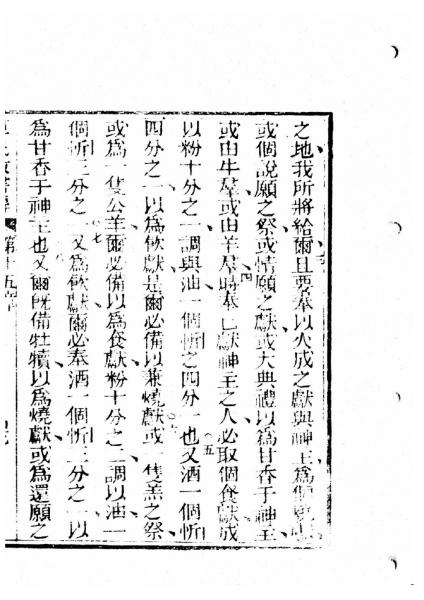 之地我所將給爾且要奉以火成之獻與神主為
或個說願之祭或情願之獻或大典禮以為甘香于神主
或由牛羣或由羊羣時奉己獻神主之人必取個食獻成
以粉十分之一調與油一個惞之四分一也又酒一個惞
四分之一以為飲獻是爾必備以兼燒獻或一隻羔之祭
或為一隻公羊爾必備以為食獻粉十分之二調以油一
個惞三分之一又為飲獻爾必奉酒一個惞三分之一以
為甘香于神主也又爾既備牡犢以為燒獻或為還願之
第十五章
四
五
六
七